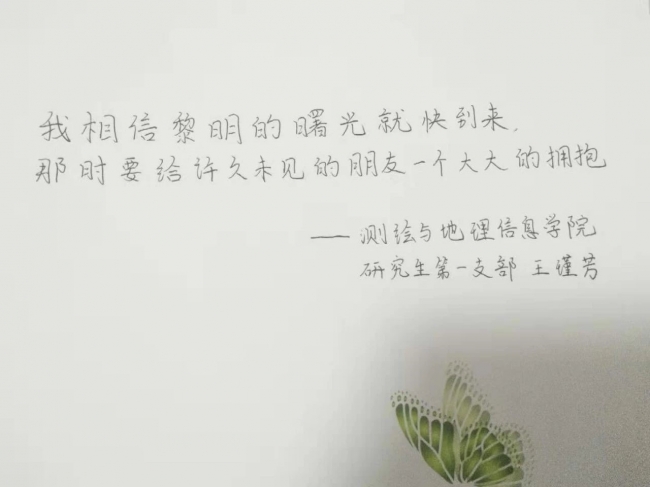 我相信黎明的曙光就快到来,
那时要给许久未见的朋友一个大大的拥抱
——测绘与地理信息学院
研究生第一支部 王瑾芳